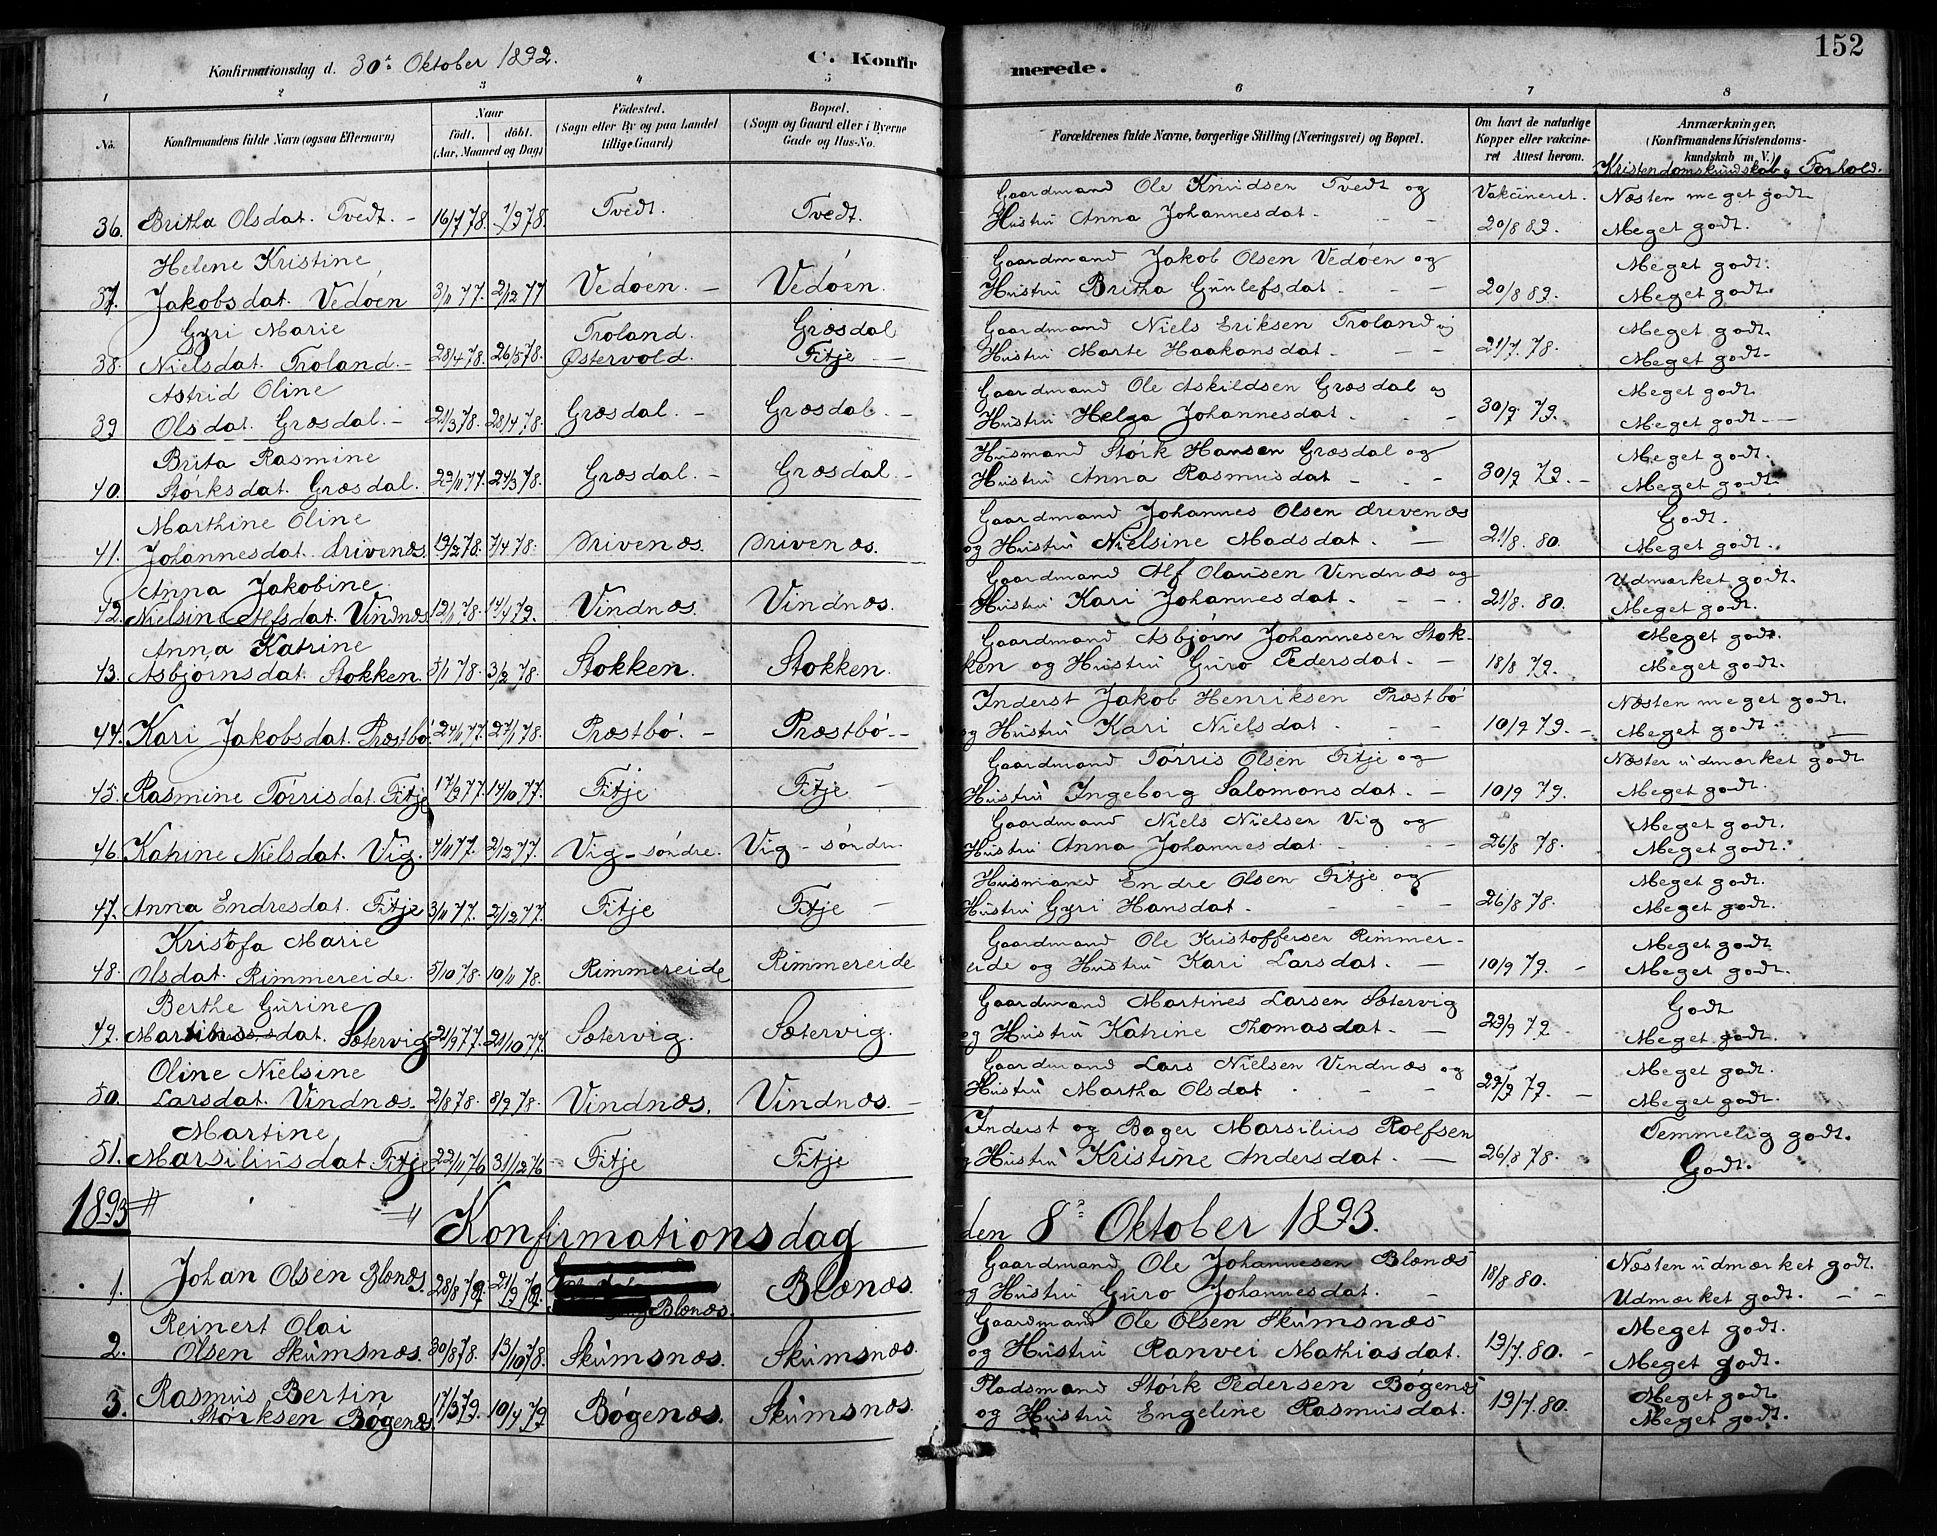 152
Konfirmationsdag d. 30te Oktober 1892. C. Konfirmerede.
1 2 3 4 5 6 7 8
No. Konfirmandens fulde Navn (ogsaa Efternavn) Naar födt. döbt. (Aar, Maaned og Dag) Födested. (Sogn eller By og paa Landet tillige Gaard) Bopæl. (Sogn og Gaard eller i Byerne Gade og Hus-No. Forældrenes fulde Navne, borgerlige Stilling (Næringsvei) og Bopæl. Om havt de naturlige Kopper eller vakcineret Attest herom. Anmærkninger, (Konfirmandens Kristendomskundskab m. V.)
Kristendomskundskab & Forhold.
36. Britha Olsdat. Tvedt. 16/7 78. 1/9 78. Tvedt. Tvedt. Gaardmand Ole Knudsen Tvedt og Hustru Anna Johannesdat. Vakcineret. 20/8 82. Næsten meget godt Meget godt.
37. Helene Kristine Jakobsdat. Vedøen 3/11 77. 2/12 77 Vedøen. Vedøen. Gaardmand Jakob Olsen Vedøen og Hustru Britha Gunlefsdat. 20/8 82. Meget godt. Meget godt.
38. Gyri Marie Nielsdat. Troland. 28/4 78. 26/5 78. Troland. Østervold. Græsdal Fitje Gaardmand Niels Eriksen Troland og Hustru Marte Haakonsdat. 21/7. 78. Meget godt. Meget godt.
39 Astrid Oline Olsdat. Græsdal. 21/3 78. 28/4 78. Græsdal. Græsdal. Gaardmand Ole Askildsen Græsdal og Hustru Helga Johannesdat. 30/9 79. Meget godt Meget godt.
40. Brita Rasmine Størksdat. Græsdal. 22/11 77. 24/3 78. Græsdal. Græsdal. Husmand Størk Hansen Græsdal og Hustru Anna Rasmusdat 30/9 79. Meget godt. Meget godt.
41. Marthine Oline Johannesdat. Drivenæs. 19/2 78. 7/4 78. Drivenæs. Drivenæs. Gaardmand Johannes Olsen Drevenæs og Hustru Nielsine Madsdat. 21/8. 80. Godt. Meget godt.
42. Anna Jakobine Nielsine Alfsdat. Vindnæs 12/11 78. 14/1 79. Vindnæs. Vindnæs. Gaardmand Alf Olausen Vindnæs og Hustru Kari Johannesdat. 21/8. 80. Udmærket godt. Meget godt.
43. Anna Katrine Asbjørnsdat. Stokken. 5/1 78. 3/2 78. Stokken. Stokken. Gaardmand Asbjørn Johannesen Stokken og Hustru Guro Pedersdat. 18/8 79. Meget godt. Meget godt.
44. Kari Jakobsdat. Præstbø. 24/11 77. 27/1 78. Præstbø. Præstbø. Inderst Jakob Henriksen Præstbø og Hustru Kari Nielsdat. 10/9 79. Næsten meget godt. Meget godt.
45. Rasmine Tørrisdat. Fitje 17/9 77. 14/10 77. Fitje Fitje Gaardmand Tørris Olsen Fitje og Hustru Ingeborg Salomonsdat. 10/9 79. Næsten udmærket godt Meget godt.
46. Katrine Nielsdat. Vig. 4/11 77. 2/12 77. Vig - søndre. Vig - søndre Gaardmand Niels Nielsen Vig og Hustru Anna Johannesdat. 26/8 78. Meget godt. Meget godt.
47. Anna Endresdat. Fitje 3/11 77. 2/12 77. Fitje Fitje Husmand Endre Olsen Fitje og Hustru Gyri Hansdat. 26/8 78. Meget godt. Meget godt.
48. Kristofa Marie Olsdat. Rimmereide. 5/10 78. 10/11 78. Rimmereide Rimmereide Gaardmand Ole Kristoffersen Rimmereide og Hustru Kari Larsdat. 10/9 79. Meget godt. Meget godt.
49. Berthe Gurine Martinesdat. Sætervig 21/9 77. 21/10 77. Sætervig. Sætervig. Gaardmand Martines Larsen Sætervig og Hustru Katrine Thomasdat. 29/9 79. Godt Meget godt.
50. Oline Nielsine Larsdat. Vindnæs. 2/8 78. 8/9 78. Vindnæs. Vindnæs. Gaardmand Lars Nielsen Vindnæs og Hustru Martha Olsdat 29/9 79. Meget godt. Meget godt.
51. Martine Marsiliusdat. Fitje 22/11 76 31/12 76 Fitje Fitje Inderst og Bager Marsilius Rolfsen og Hustru Kristine Andersdat. 26/8 78. Temmelig godt. Godt.
1893 Konfirmationsdag den 8de Oktober 1893.
1. Johan Olsen Blænæs. 28/8 79. 21/9 79. Blænæs. Blænæs. Gaardmand Ole Johannesen Blænæs og Hustru Guro Johannesdat. 18/8 80. Næsten udmærket godt. Udmærket godt.
2. Reinert Olai Olsen Skumsnæs. 30/8 78. 13/10 78. Skumsnæs. Skumsnæs. Gaardmand Ole Olsen Skumsnæs og Hustru Ranvei Mathiasdat. 19/7. 80. Meget godt. Meget godt.
3. Rasmus Bertin Størksen Bøgenæs. 17/3 79. 10/4 79 Bøgenæs. Skumsnæs. Pladsmand Størk Pedersen Bøgenæs og Hustru Engeline Rasmusdat. 19/7. 80. Meget godt. Meget godt.